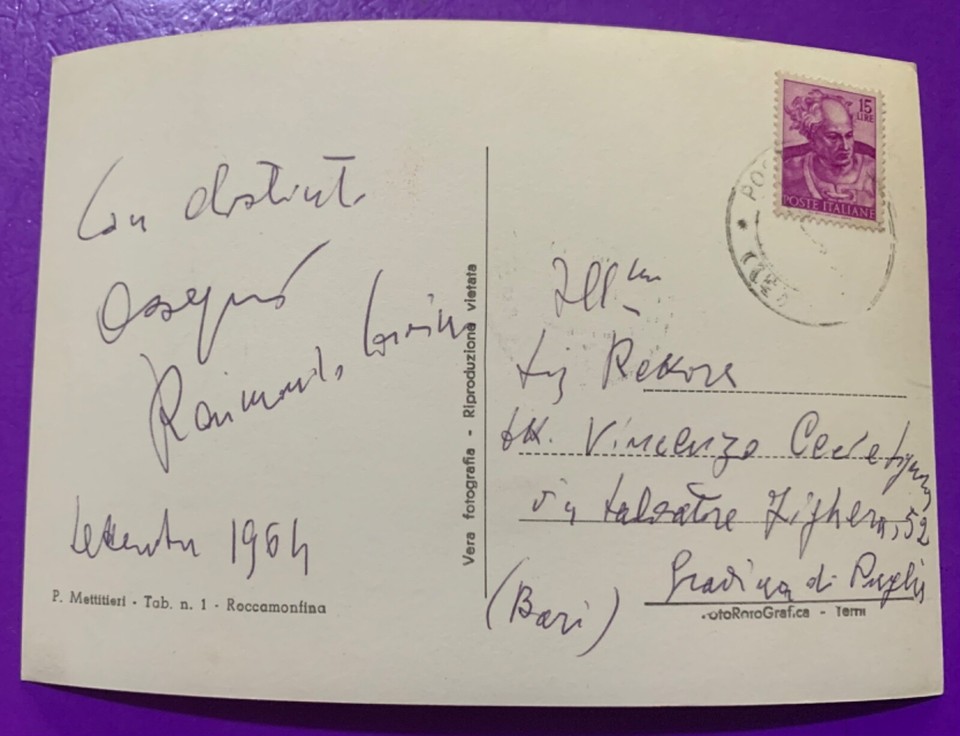 Con distinti
Ossequi
Raimondo
Settembre 1964
P. Mettitieri - Tab. n. 1 - Roccamonfina
Vera fotografia - Riproduzione vietata
15
LIRE
POSTE ITALIANE
Ill.mo
Sig Rettore
Vincenzo
via Salvatore 52
Gravina di Puglia
(Bari)
FotoRotoGrafica - Terni